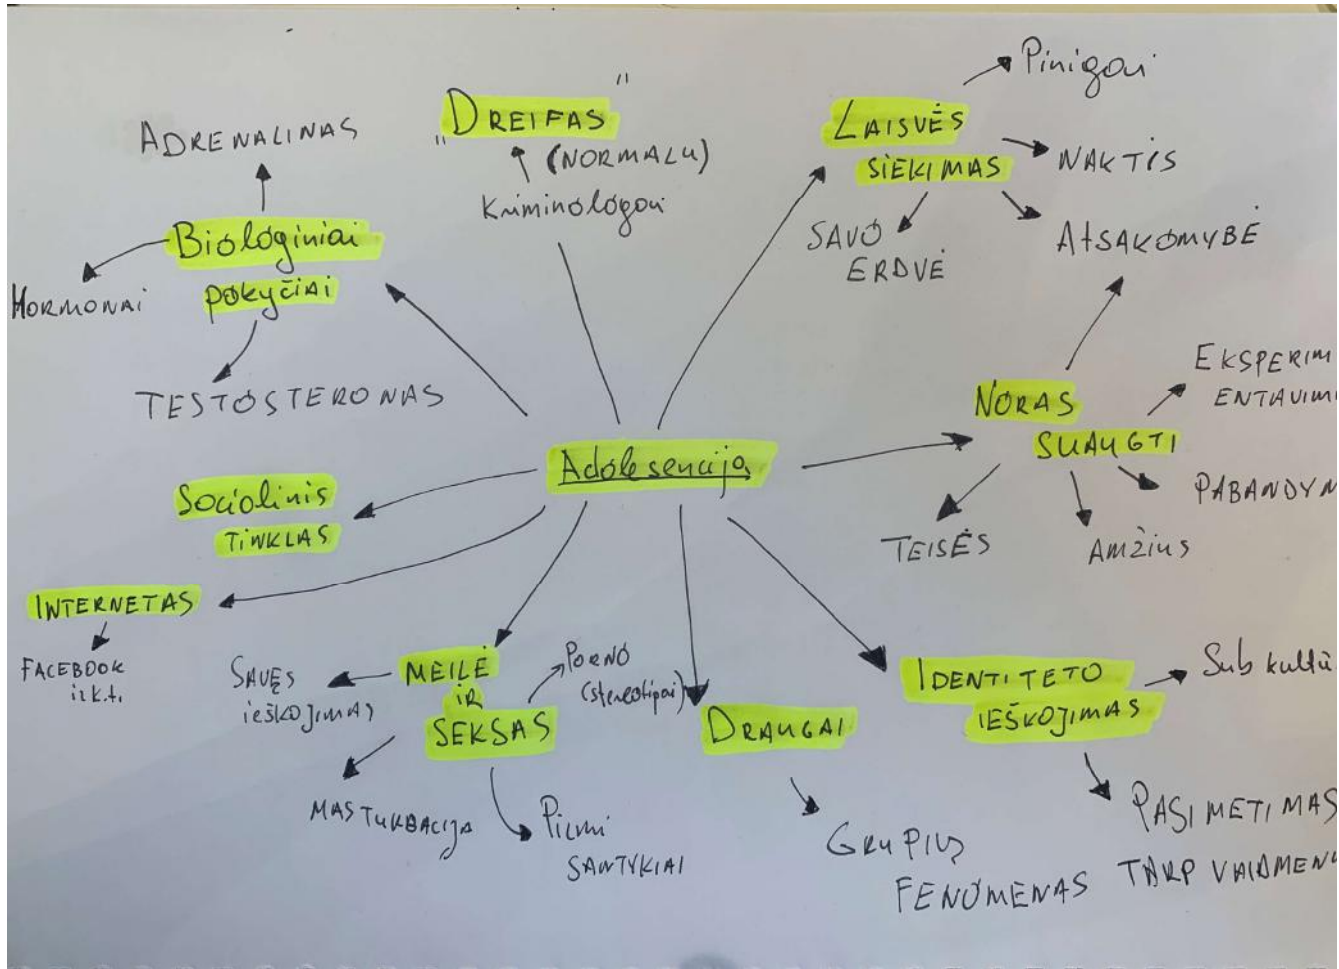 ADRENALINAS
Biologiniai
pokyčiai
HORMONAI
TESTOSTERONAS
"DREIFAS"
(NORMALU)
Kriminologai
LAISVĖS
SIEKIMAS
Pinigai
NAKTIS
ATSAKOMYBĖ
SAVO
ERDVĖ
Adolesencija
NORAS
SUAUGTI
EKSPERIM
ENTAVIM
PABANDYM
AMŽIUS
TEISĖS
Sociolinis
TINKLAS
INTERNETAS
FACEBOOK
ir k.t.
MEILĖ
IR
SEKSAS
SAVĘS
IEŠKOJIMAS
PORNO
(stereotipai)
MASTURBACIJA
Pirmi
SANTYKIAI
DRAUGAI
GRUPIŲ
FENOMENAS
IDENTITETO
IEŠKOJIMAS
Subkultū
PASIMETIMAS
TARP VAIDMENŲ